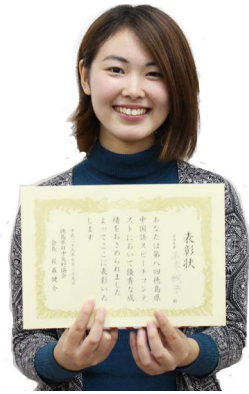 表彰状
殿
あなたは第八回徳島県
中国語スピーチコンテ
ストにおいて優秀な成
績をおさめられました
よってここに表彰いた
します
徳島県日中友好協会
会長